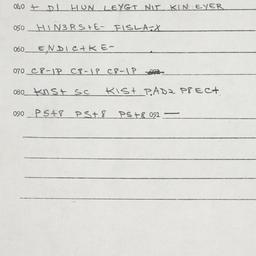 040 + DI HUN LEYGT NIT KIN EYER
050 HINЗRS+E- FISLA-X
060 ENDIC+KE-
070 C8-1P C8-1P C8-1P
080 KNS+ SC KIS+ PADƏ PREC+
090 PS+8 PS+8 PS+8 092 —